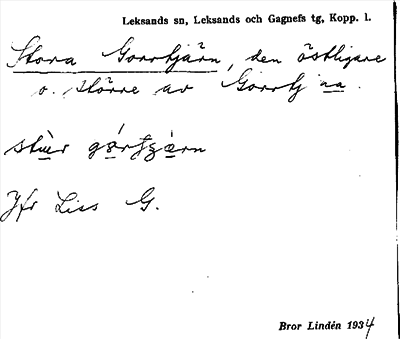 Leksands sn, Leksands och Gagnefs tg, Kopp. l.
Stora Gorrtjärn, den östligare
o. större av Gorrtj aa.
Jfr Liss G.
Bror Lindén 1934